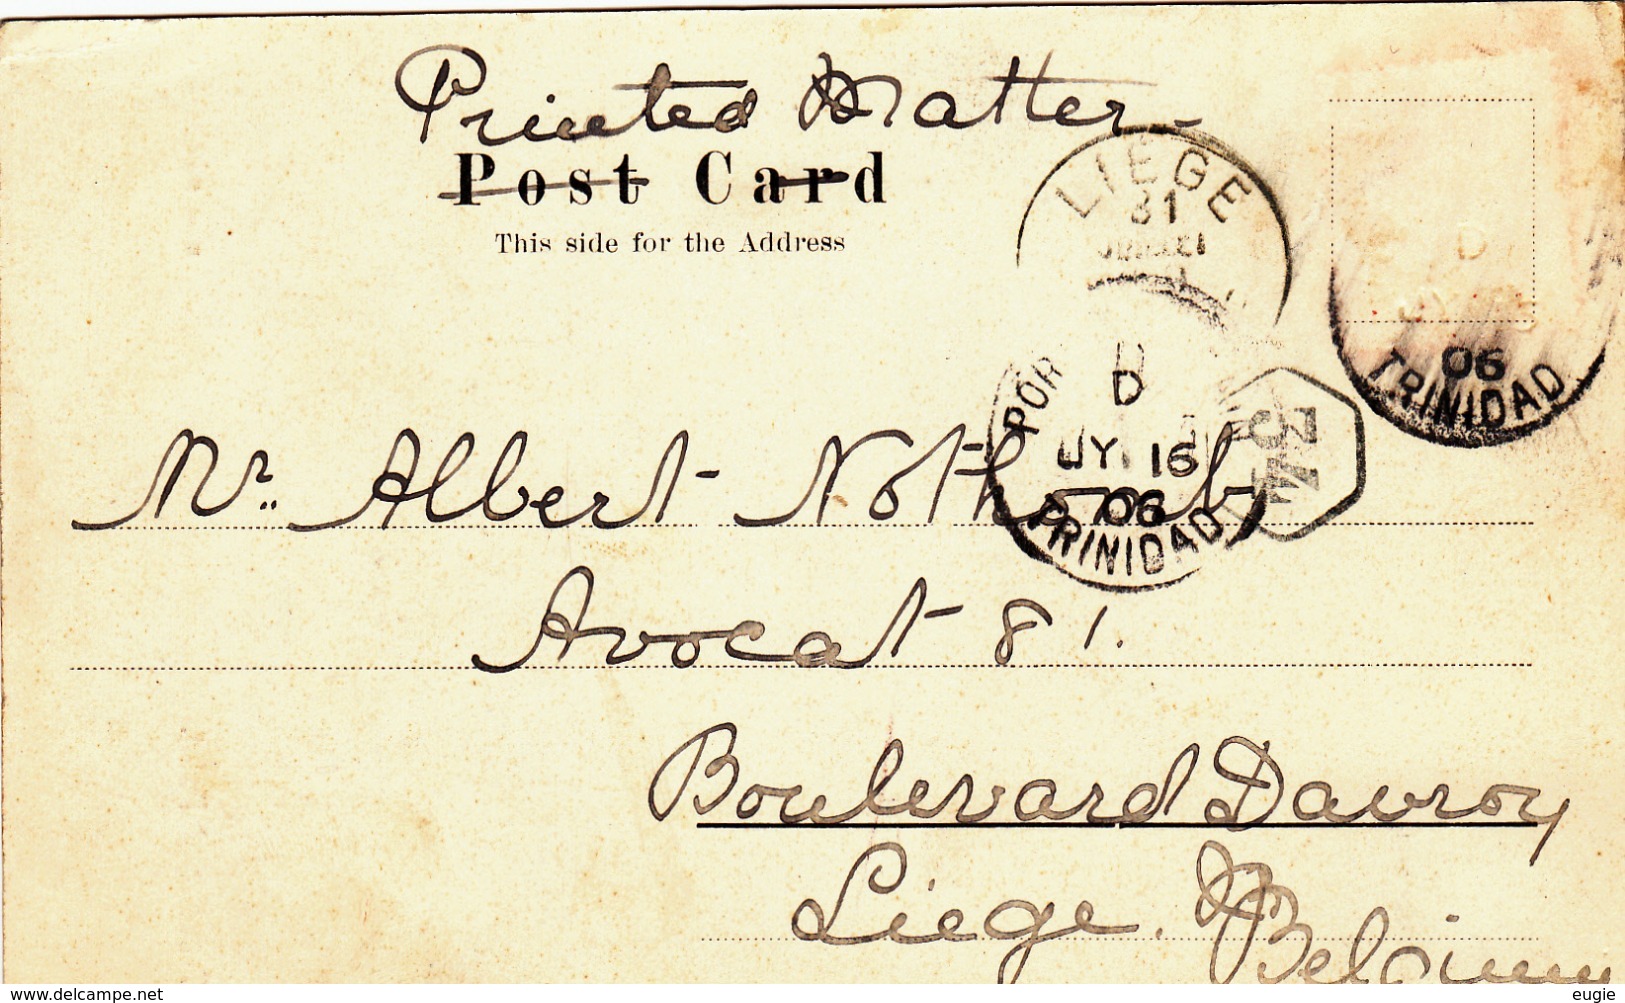 Printed Matter -
Post Card
This side for the Address
LIEGE
31
D
JY. 16
06
TRINIDAD
06
TRINIDAD
34
Mr. Albert Nothomb
Avocat 81.
Boulevard Davroy
Liege. Belgium
www.delcampe.net
eugie